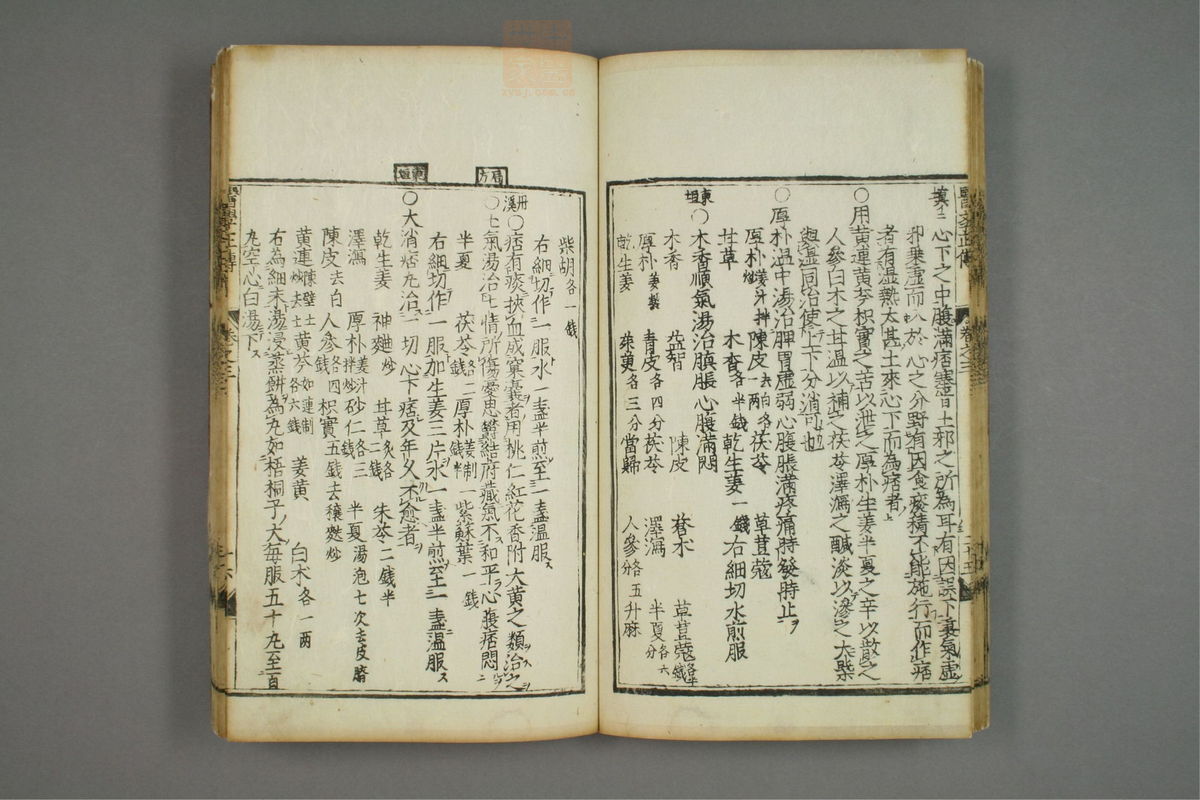 心下之中腹滿痞塞皆土邪之所為耳有因誤下裏氣虛
邪乗虛而入於心之分野有因食痰積不能施行而作痞
者有湿熱太甚土來心下而為痞者
○用黄連黄芩枳實之苦以泄之厚朴生姜半夏之辛以散之
人參白朮之甘温以補之茯苓澤瀉之醎淡以滲之大槩
與湿同治使上下分消可也
○厚朴温中湯治脾胃虛弱心腹脹滿疼痛時發時止
厚朴姜汁拌 陳皮去白各一两 茯苓 草荳蔲
甘草 木香各半錢 乾生姜一錢 右細切水煎服
東垣
○木香順氣湯治䐜脹心腹滿悶
木香 益智 陳皮 蒼朮 草荳蔲各半錢
厚朴姜製 青皮各四分 茯苓 澤瀉 半夏各六分
乾生姜 茱萸各三分 當歸 人參各五分 升麻
柴胡各一錢
右細切作一服水一盞半煎至一盞温服
丹溪
○痞有痰挾血成窠囊者用桃仁紅花香附大黄之類治之
局方
○七氣湯治七情所傷憂思欝結府藏氣不和平心腹痞悶
半夏 茯苓各二錢 厚朴姜制一錢半 紫蘇葉一錢
右細切作一服加生姜三片水一盞半煎至一盞温服
東垣
○大消痞丸治一切心下痞及年久不愈者
乾生姜 神麯炒 甘草炙各二錢 朱苓二錢半
澤瀉 厚朴姜汁拌炒 砂仁各三錢 半夏湯泡七次去皮臍
陳皮去白 人參各四錢 枳實五錢去穰麩炒
黄連陳壁土炒去土 黄芩如連制各六錢 姜黄 白朮各一两
右為細末湯浸蒸餅為丸如梧桐子大每服五十丸至百
丸空心白湯下
醫學正傳 卷之三
zysj.com.cn